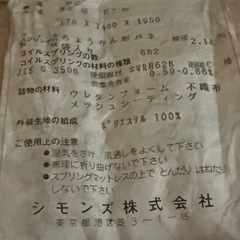 170×1400×1950
スプリング ちょうちん形バネ 線径2.1
コイルスプリングの数 682
コイルスプリングの材料の種類
JIS G 3506 硬鋼線材 SWRH62B C
0.59-0.66%
詰物の材料 ウレタンフォーム 不織布
メッシュシーティング
外装生地の組成 ポリエステル 100%
ご使用上の注意
●湿気をさけ、風通しをよくして下さい
●無理に折り曲げないで下さい
●スプリングマットレスの上で とんだり はねたり
しないで下さい
シモンズ株式会社
東京都港区芝3-4-15